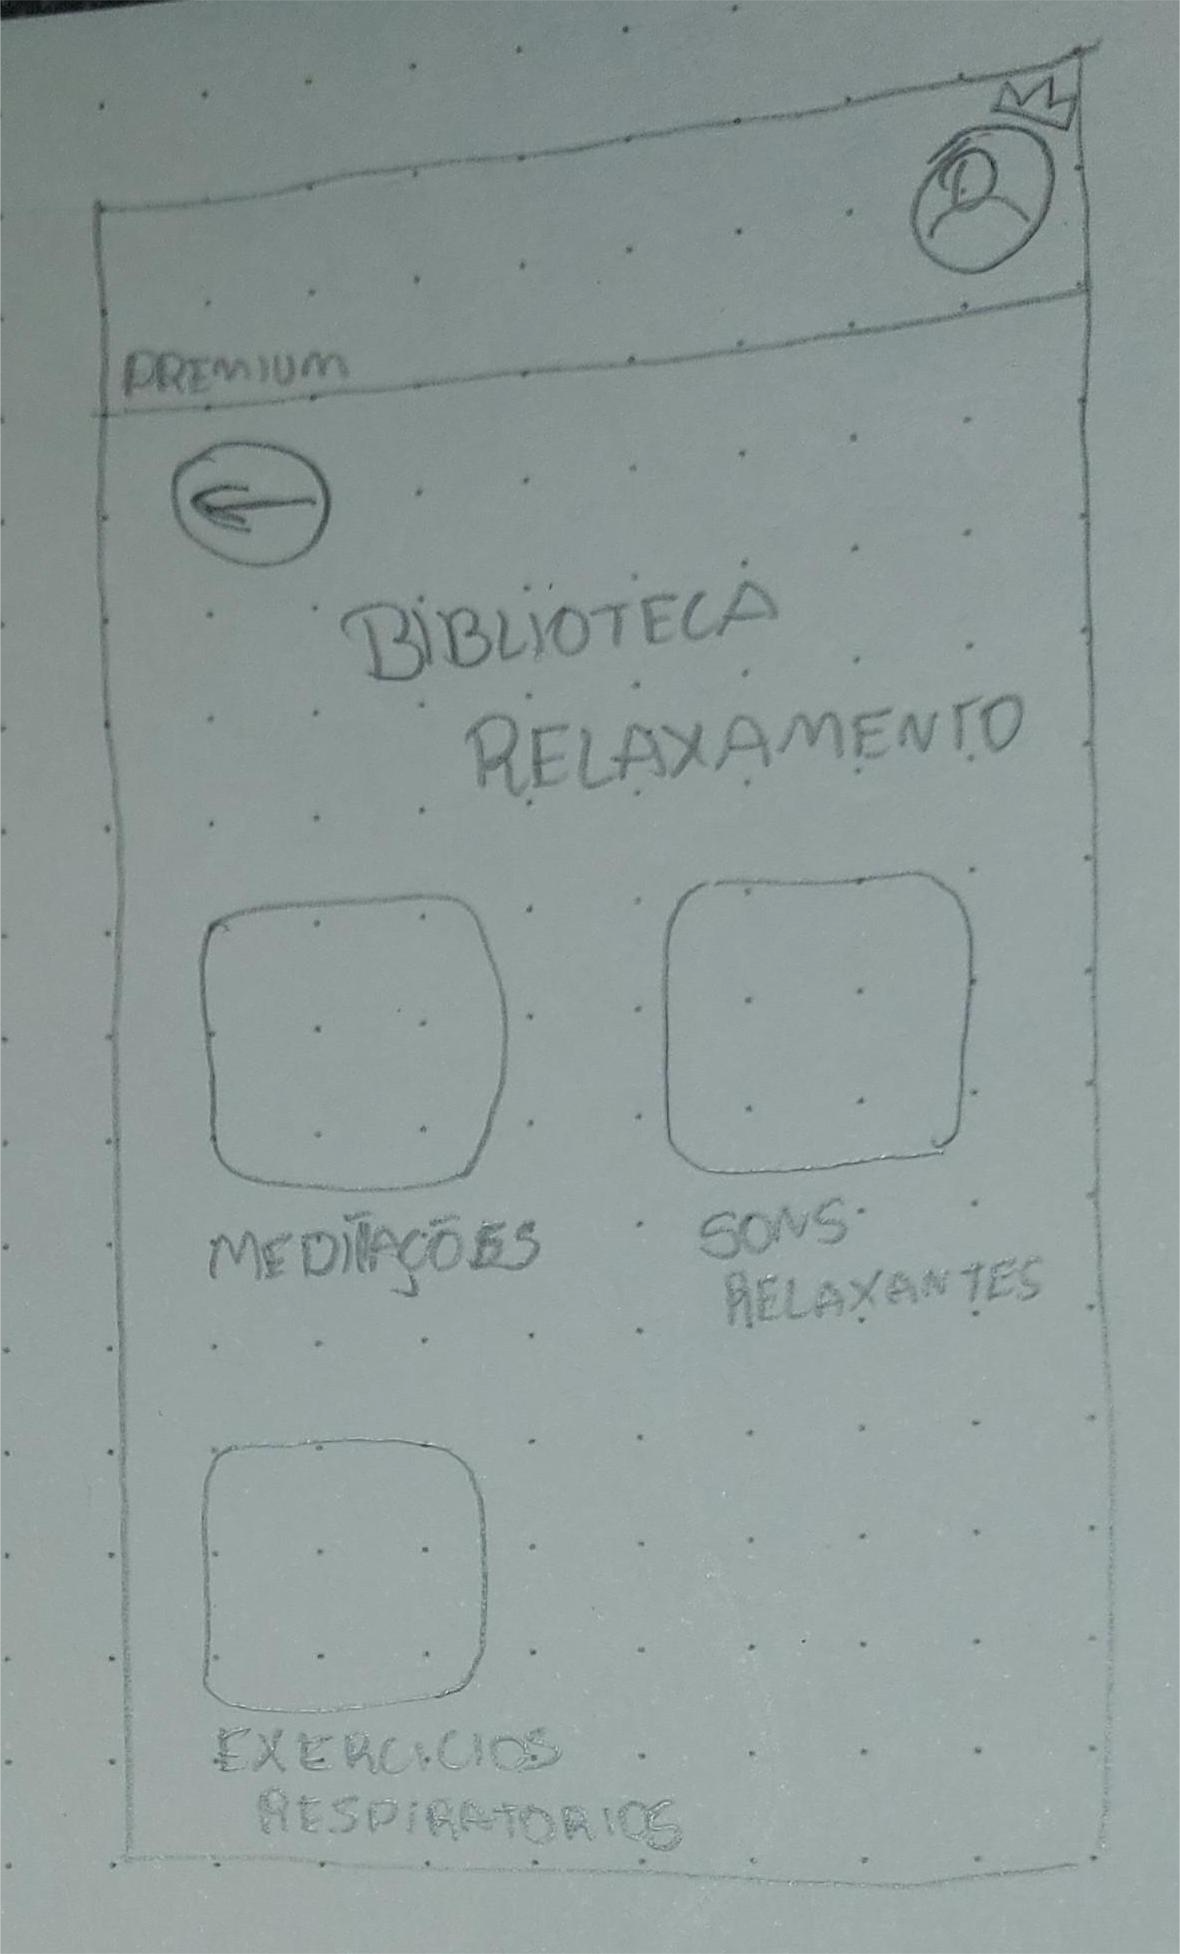 PREMIUM
BIBLIOTECA
RELAXAMENTO
MEDITAÇÕES
SONS
RELAXANTES
EXERCICIOS
RESPIRATORIOS